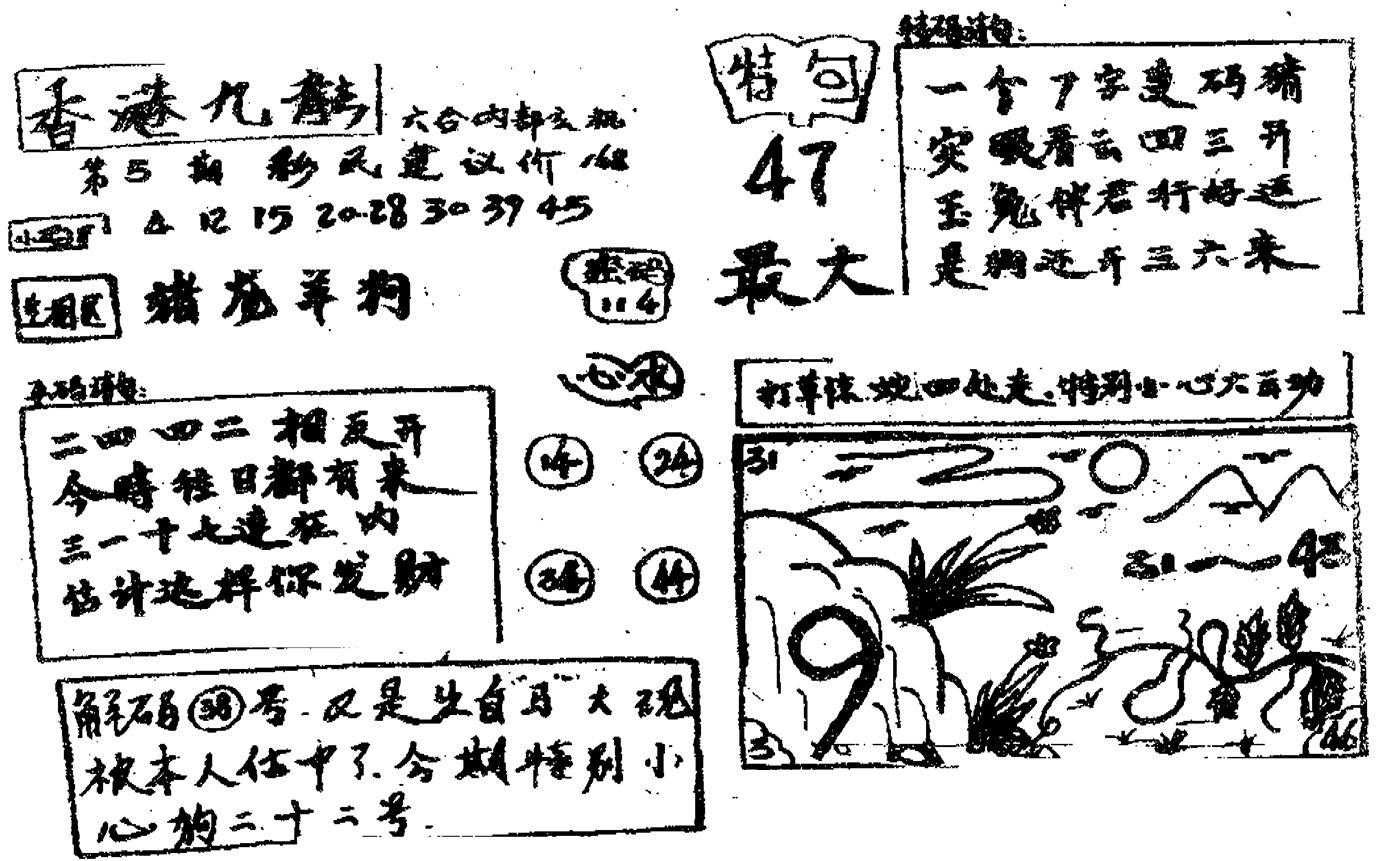 香港九龍
六合内部玄机
第5期 彩民建议价168
12 15 20.28 30 39 45
生相区 猪龙羊狗
114
心水
14 24
34 44
平码诗句:
二四四二相反开
今時往日都有来
三一十七連在内
估计这样你发财
解码38号.又是生自马大现
被本人估中了.今期特别小
心狗二十二号.
特句
47
最大
特码诗句:
一个7字变码猪
突眼看云四三开
玉兔伴君行好运
是狗还开三六来
打草惊蛇四处走.特别小心六云动
31
31 43
9
3
46